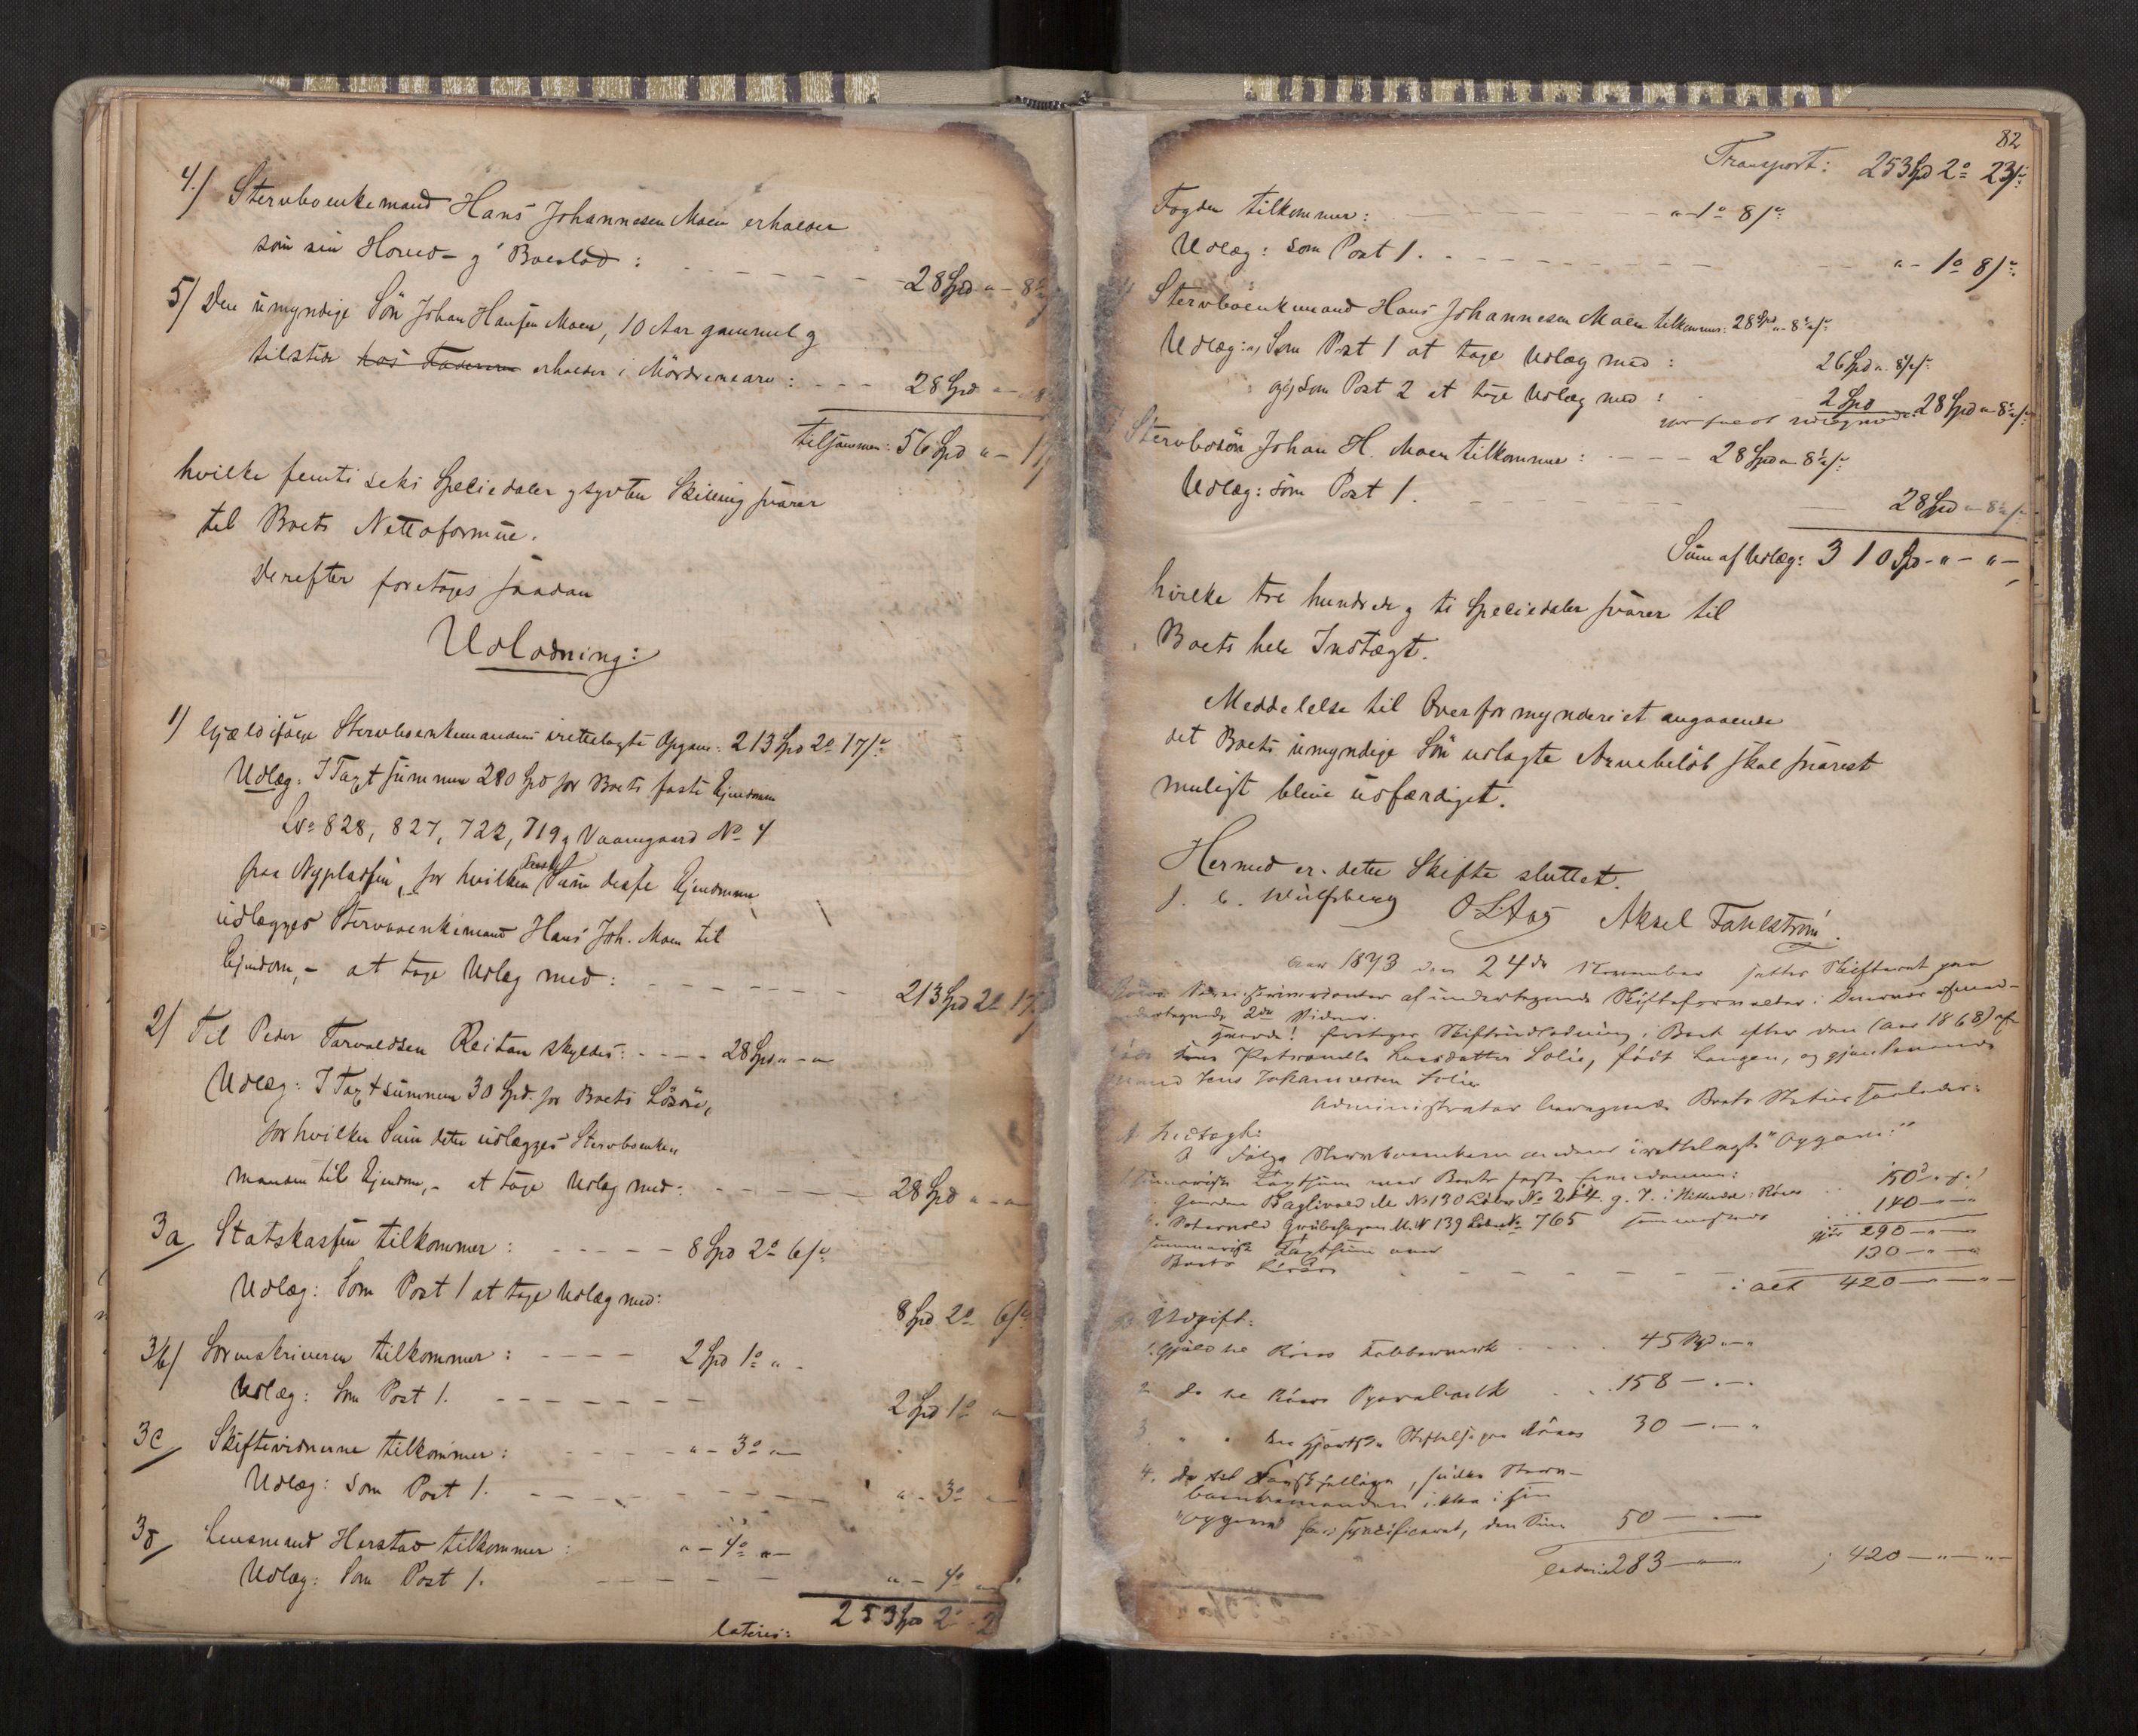 4.) Stervboenkemand Hans Johannesen Moen erholder
som sin Hoved- og Boeslod: 28 Spd " - 8
5) Den umyndige Sön Johan Hansen Moen, 10 Aar gammel og
tilstede hos Faderen erholder i Mödrenearv: 28 Spd " -
tilsammen: 56 Spd " - 17
hvilke femti seks Speciedaler og sytten Skilling svarer
til Boets Nettoformue.
Derefter foretages saadan
Udlodning:
1) Gjæld ifölge Stervboenkemandens irettelagte Opgave: 213 Spd 2o 17 s
Udlæg: I Taxtsummen 280 Spd for Boets faste Ejendomme
Lno 828, 827, 722, 719 og Vaaningaard No 4
paa Nypladsen, for hvilken Taxt Sum disse Ejendomme
udlægges Stervboenkemand Hans Joh. Moen til
Ejendom, - at tage Udlæg med: 213 Spd 2o 17
2) Til Peder Tarvaldsen Reitan skyldes: 28 Spd " - "
Udlæg: I Taxtsummen 30 Spd. for Boets Lösöre,
for hvilken Sum dette udlægges Stervboenke
manden til Ejendom, - at tage Udlæg med: 28 Spd " - "
3a Statskassen tilkommer: 8 Spd 2o 6 s
Udlæg: Som Post 1 at tage Udlæg med: 8 Spd 2o 6 s
3b) Sorenskriveren tilkommer: 2 Spd 1o " -
Udlæg: Som Post 1. 2 Spd 1o "
3c Skiftevidnerne tilkommer: " - 3o " -
Udlæg: som Post 1. " - 3o
3d Lensmand Harstad tilkommer: " - 4o " -
Udlæg: Som Post 1. " - 4o
lateris: 253 Spd 2o - 2
82
Transport: 253 Spd 2o 23 s
Fogden tilkommer: " - 1o 8 s
Udlæg: som Post 1. " - 1o 8 s
Stervboenkemand Hans Johannesen Moen tilkommer: 28 Spd " - 8½ s
Udlæg: a, Som Post 1 at tage Udlæg med: 26 Spd " 8½ s
og b, som Post 2 at tage Udlæg med: 2 Spd 28 Spd " - 8½ s
Stervbosön Johan H. Moen tilkommer: 28 Spd " - 8½ s
Udlæg: som Post 1. 28 Spd " - 8½ s
Sum af Udlæg: 310 Spd - " - " -
hvilke tre hundrede og ti Speciedaler svarer til
Boets hele Indtægt.
Meddelelse til Overformynderiet angaaende
det Boets umyndige Sön udlagte Arvebelöb skal snarest
muligt blive udfærdiget.
Hermed er dette Skifte sluttet.
J. C. Wulfsberg O. L. Aas Aksel Fahlström.
Aar 1873 den 24de November sattes Skifteret paa
Röros af undertegnede Skifteforvalter i
undertegnede 2de Vidner.
foretages Skifteudlodning i Boet efter den (Aar 1868) af
döde Larsdatter Solie, födt Langen, og gjenlevende
mand Jens Johannesen Solie
Administrator beregnede Boets Status saaledes:
A Indtægt:
I Fölge Stervboenkemandens irettelagte "Opgave":
Boets faste Ejendomme:
Gaarden M. No 130 Löbe No 214 g. 7. i Röros 150
M. N 139 Löbe No 765 140 - " -
gjör 290 - " -
Boets Lösöre 130 - " -
i alt 420 - " - " -
B Udgift:
1. Gjæld til Röros Kobberværk 45 Spd " - "
2. do til Röros 158 - " -
3. " " den Stiftelse paa Röros 30 - " - "
4. do til , siden Sterv-
boenkemanden ikke i sin
"Opgave" har specificeret, den Sum 50 - " -
Lateris 283 - " - " ; 420 - " - " -